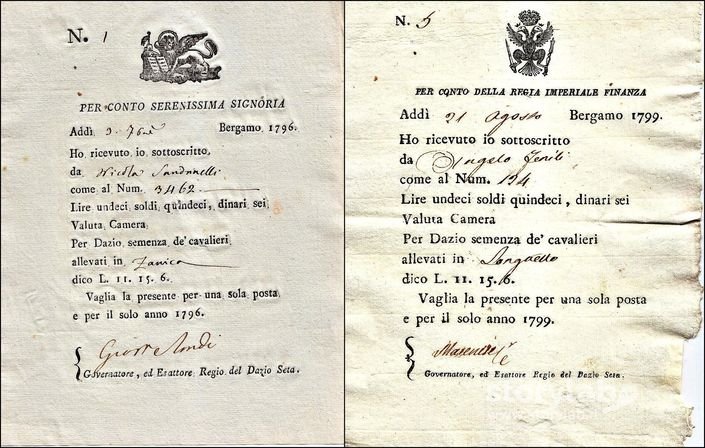 N. 1
PER CONTO SERENISSIMA SIGNORIA
Addì 3. 7brè Bergamo 1796.
Ho ricevuto io sottoscritto
da Nicola
come al Num. 3462
Lire undeci, soldi, quindeci, dinari sei
Valuta Camera
Per Dazio semenza de' cavalieri
allevati in Zanica
dico L. 11. 15. 6.
Vaglia la presente per una sola posta
e per il solo anno 1796.
Governatore, ed Esattore Regio del Dazio Seta.
N. 5
PER CONTO DELLA REGIA IMPERIALE FINANZA
Addì 21 agosto Bergamo 1799.
Ho ricevuto io sottoscritto
da Angelo
come al Num. 194
Lire undeci soldi quindeci, dinari sei
Valuta Camera
Per Dazio semenza de' cavalieri
allevati in Longuelo
dico L. 11. 15. 6.
Vaglia la presente per una sola posta
e per il solo anno 1799.
Governatore, ed Esattore Regio del Dazio Seta.